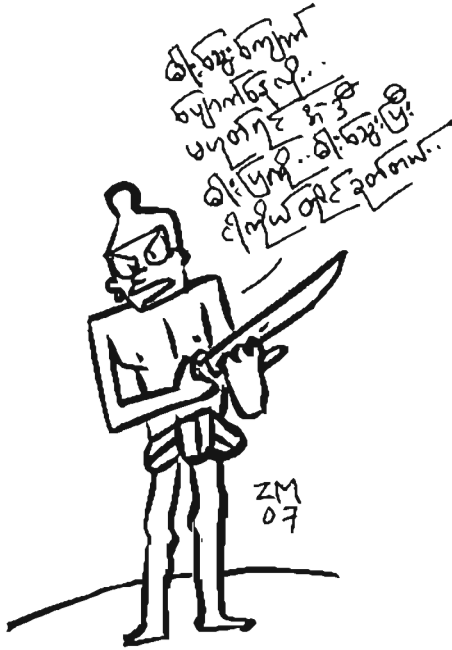 ဓါးသွေးကျောက်
ပျောက်နေလို့...
မဟုတ်ရင် အဲဒီ
ဓါးပြကို.. ဓါးသွေးပြီး
ငါကိုယ်တိုင် ခုတ်တယ်..
ZM
07